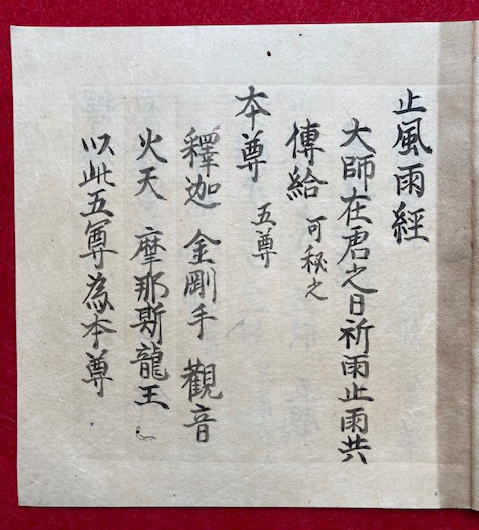 止風雨經
大師在唐之日祈雨止雨共
傳給 可秘之
本尊 五尊
釋迦 金剛手 觀音
火天 摩那斯龍王
以此五尊為本尊